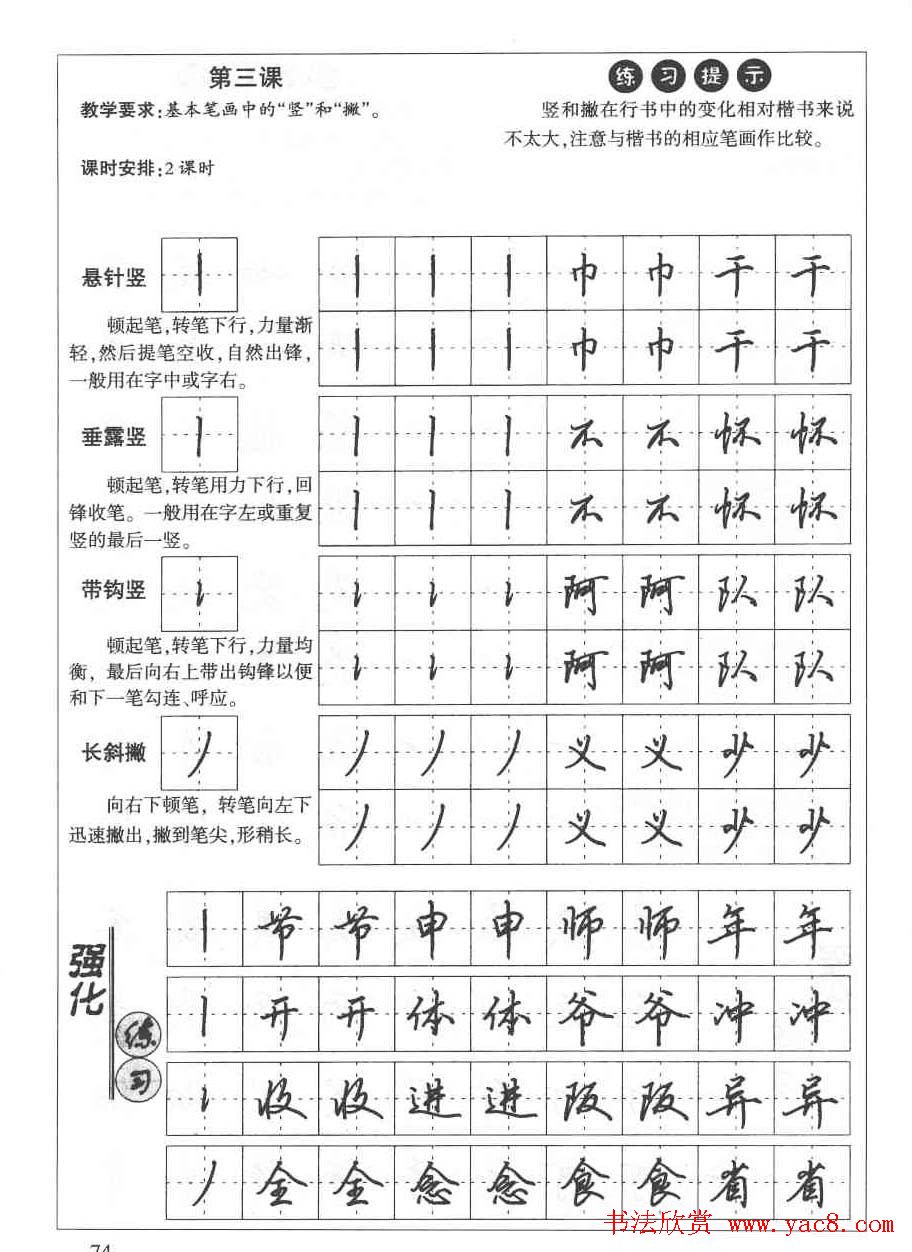 第三课
教学要求:基本笔画中的“竖”和“撇”。
课时安排:2课时
练习提示
竖和撇在行书中的变化相对楷书来说
不太大,注意与楷书的相应笔画作比较。
悬针竖
顿起笔,转笔下行,力量渐
轻,然后提笔空收,自然出锋,
一般用在字中或字右。
巾巾干干
巾巾干干
垂露竖
顿起笔,转笔用力下行,回
锋收笔。一般用在字左或重复
竖的最后一竖。
不不怀怀
不不怀怀
带钩竖
顿起笔,转笔下行,力量均
衡,最后向右上带出钩锋以便
和下一笔勾连、呼应。
阿阿队队
阿阿队队
长斜撇
向右下顿笔,转笔向左下
迅速撇出,撇到笔尖,形稍长。
义义少少
义义少少
强化
练习
申申师师年年
开开体体爷爷冲冲
收收进进阪阪异异
全全念念食食省省
74
书法欣赏 www.yac8.com